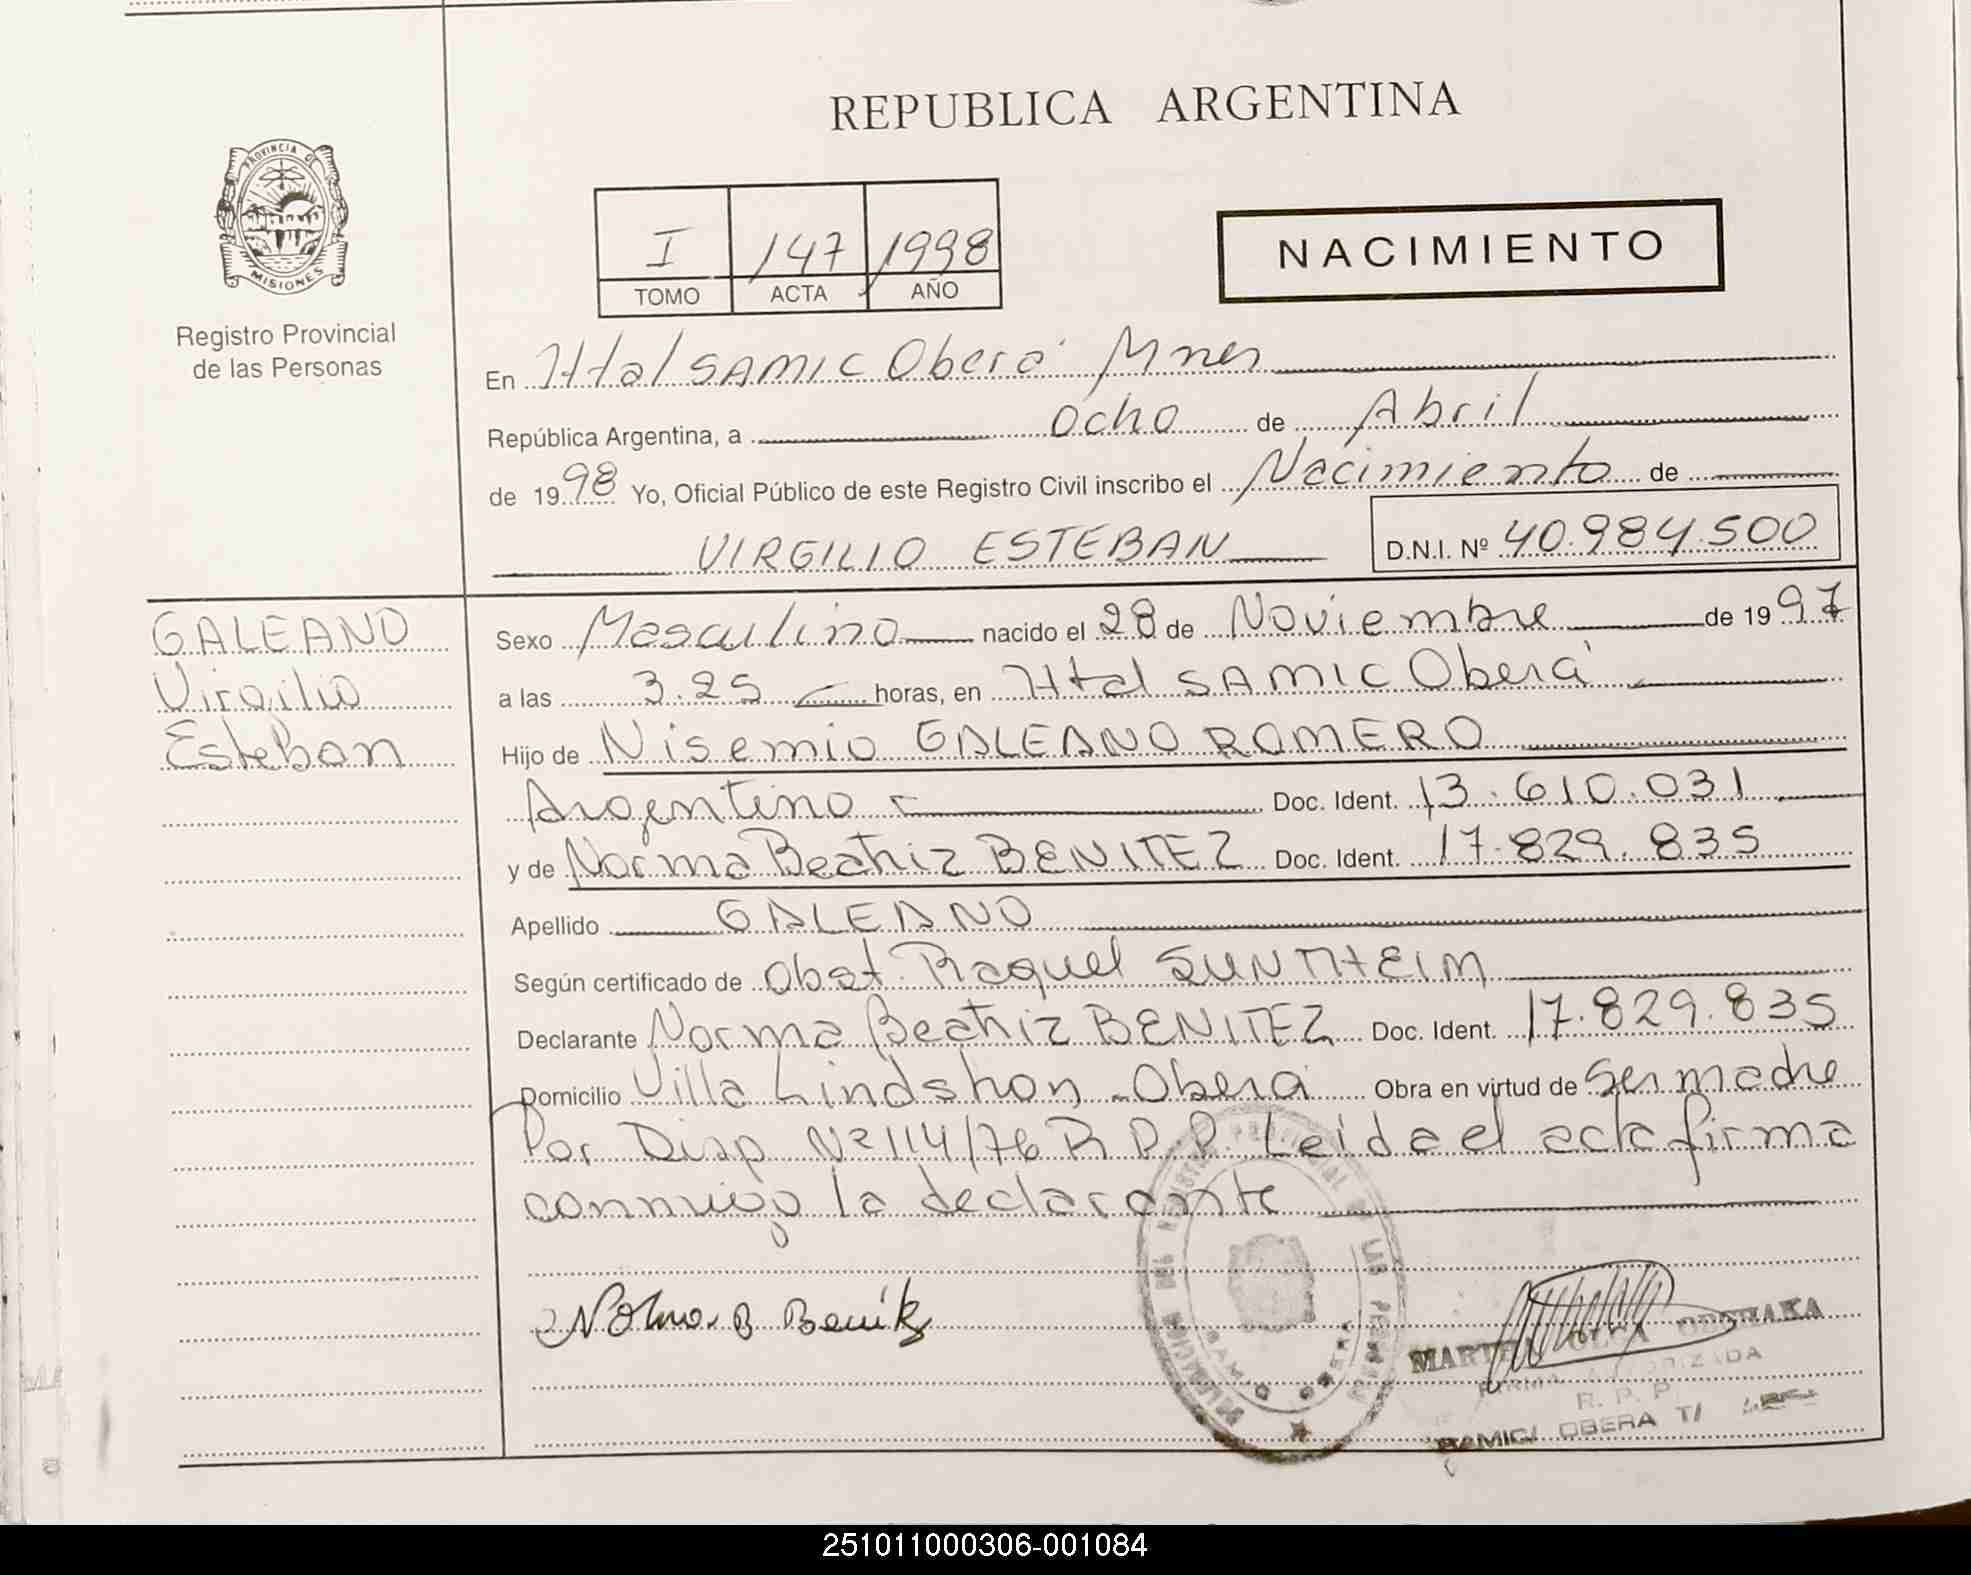 REPUBLICA ARGENTINA
PROVINCIA DE MISIONES
Registro Provincial
de las Personas
I 147 1998
TOMO ACTA AÑO
NACIMIENTO
En Htal SAMIC Oberá Mnes
República Argentina, a ocho de Abril
de 1998 Yo, Oficial Público de este Registro Civil inscribo el Nacimiento de
VIRGILIO ESTEBAN D.N.I. Nº 40.984.500
GALEANO
Virgilio
Esteban
Sexo Masculino nacido el 28 de Noviembre de 1997
a las 3.25 horas, en Htal SAMIC Oberá
Hijo de Nisemio GALEANO ROMERO
Argentino Doc. Ident. 13.610.031
y de Norma Beatriz BENITEZ Doc. Ident. 17.829.835
Apellido GALEANO
Según certificado de Obst. Raquel SUNTHEIM
Declarante Norma Beatriz BENITEZ Doc. Ident. 17.829.835
Domicilio Villa Lindshon - Oberá Obra en virtud de Ser madre
Por Disp Nº 114/76 R.P.P. Leida el acta firma
conmigo la declarante
Norma B Benitez
OLGA
R. P. P.
SAMIC/ OBERA
251011000306-001084